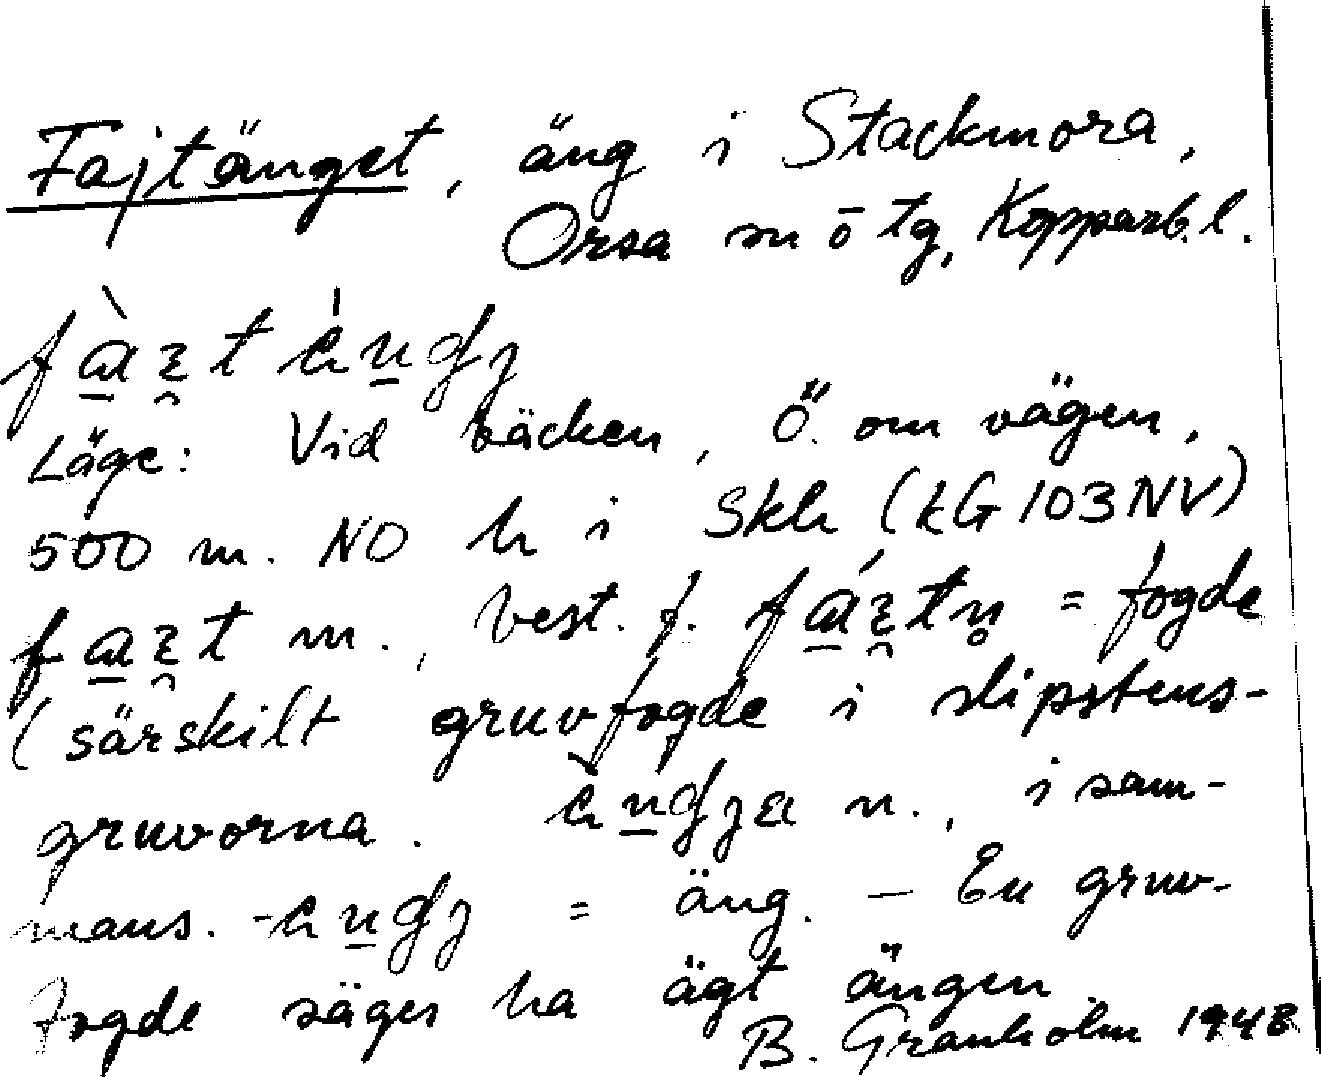 Fajtänget, äng i Stackmora,
Orsa sn ö tg, Kopparb.l.
Läge: Vid bäcken, Ö. om vägen,
500 m. NO h i Skh (kG 103 NV)
m., best. f. = fogde
(särskilt gruvfogde i slipstens-
gruvorna. n., i sam-
mans. = äng. – En gruv-
fogde säges ha ägt ängen
B. Granholm 1948